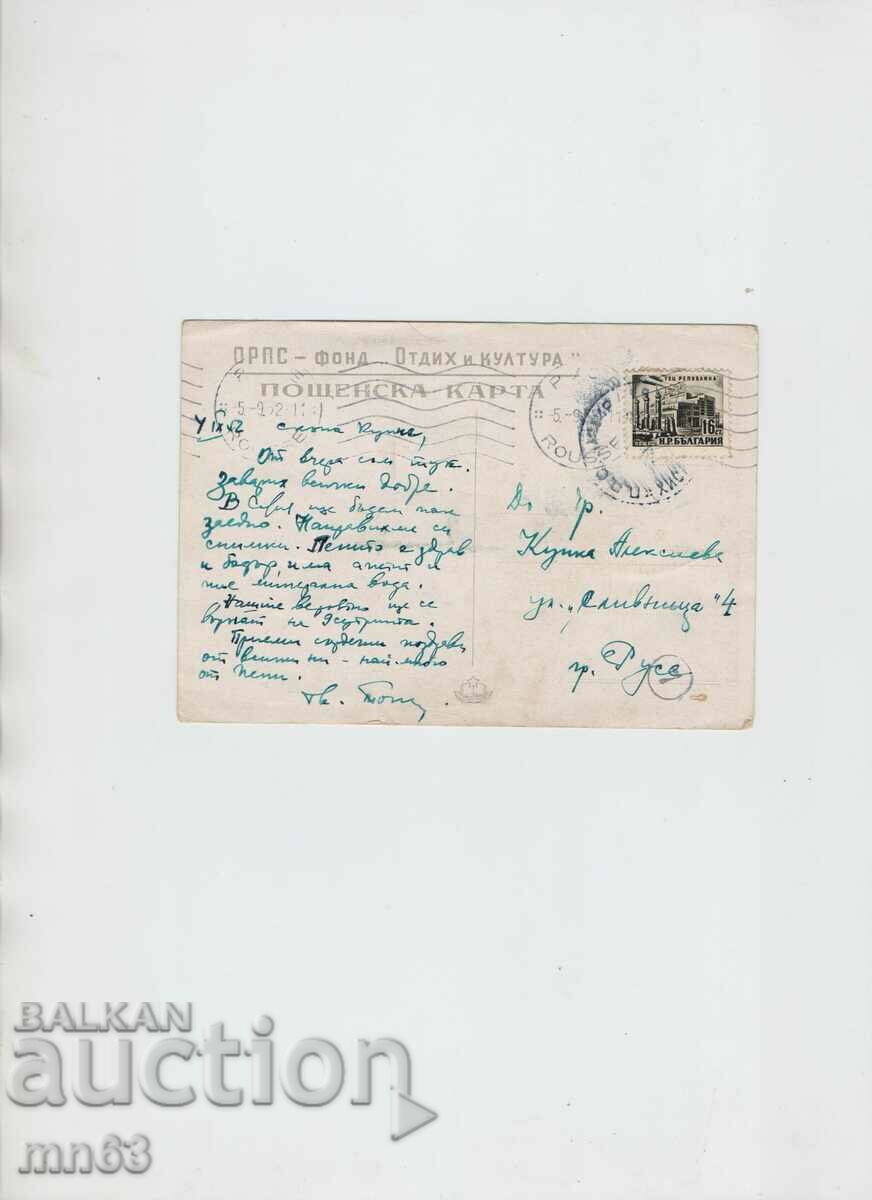 ОРПС – ФОНД „ОТДИХ И КУЛТУРА"
ПОЩЕНСКА КАРТА
5-9 52 11
ROUSSE
5-9
ROU
ТЕЦ РЕПУБЛИКА
16 СТ.
Н.Р. БЪЛГАРИЯ
IX 52 скъпа Купка,
От вчера съм тук.
Заварих всички добре.
В София ще бъдем пак
заедно. Направихме си
снимки. Пенито е здрав
и бодър, има апетит и
пие минерална вода.
Нашите вероятно ще се
върнат на
Приеми сърдечни поздрави
от всички ни – най-много
от Пепи.
тв.
До гр.
Купка Алексиева
ул. „Сливница" 4
гр. Русе
BALKAN
auction
mn63